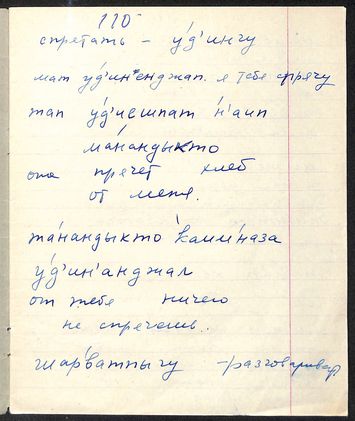 110
спретать – у́д'ингу
мат у́д'ин'енджап. я тебя спрячу
тап у́д'иешпат н'аип
ма́нандыкто
она прячет хлеб
от меня.
та́нандыкто каим́наза
у́д'ин'анджал
от тебя ничего
не спречешь.
шар́ватпыгу -разговаривар